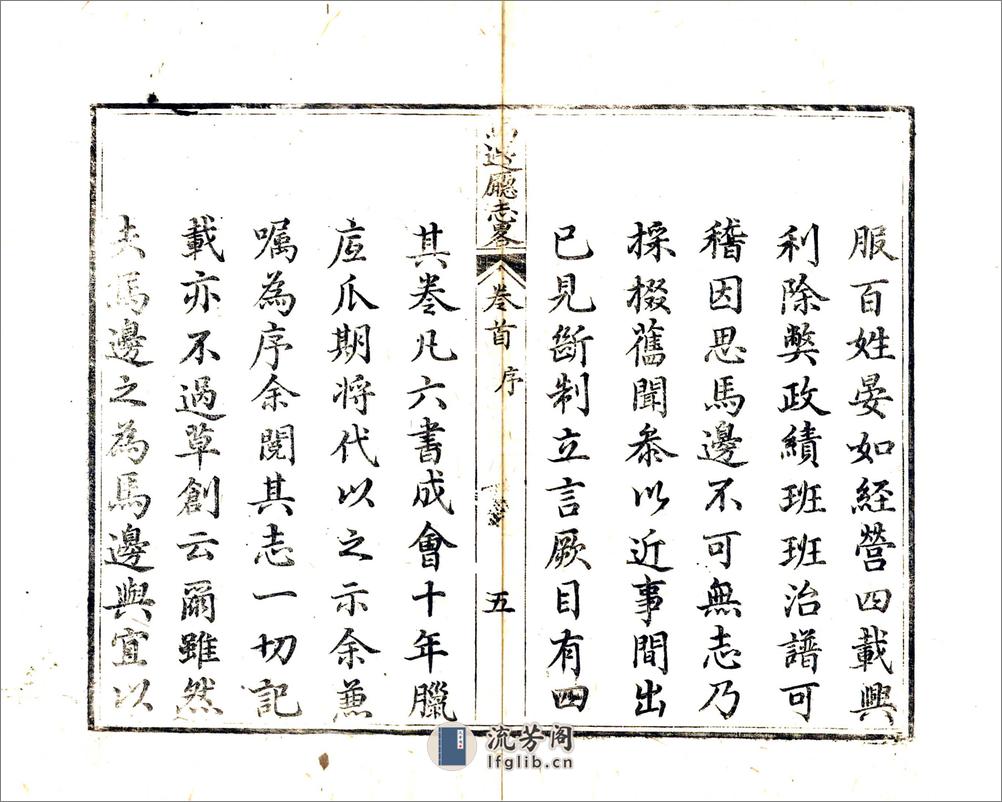 服百姓晏如經營四載興
利除弊政績班班治譜可
稽因思馬邊不可無志乃
採掇舊聞叅以近事間出
已見斷制立言厥目有四
馬邊廳志畧
卷首
序
五
其卷凡六書成會十年臘
底瓜期將代以之示余兼
囑為序余閱其志一切記
載亦不過草創云爾雖然
夫馬邊之為馬邊與宜以
流芳阁
lfglib.cn